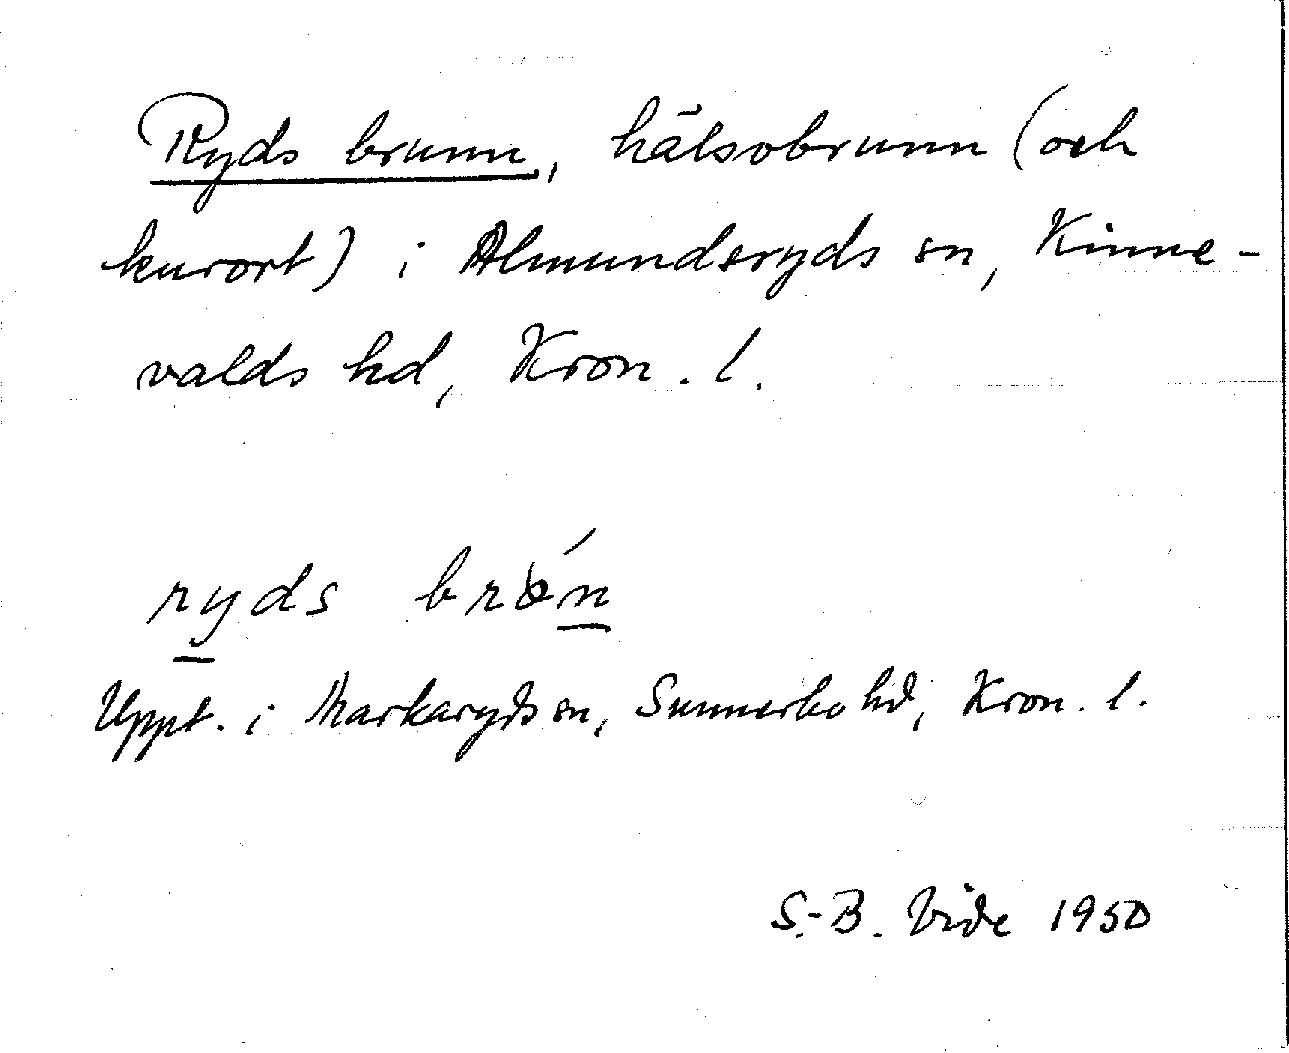 Ryds brunn, hälsobrunn (och
kurort) i Almundsryds sn, Kinne-
valds hd, Kron. l.
ryds brǿn
Uppt. i Markaryds sn, Sunnerbo hd, Kron. l.
S.-B. Vide 1950